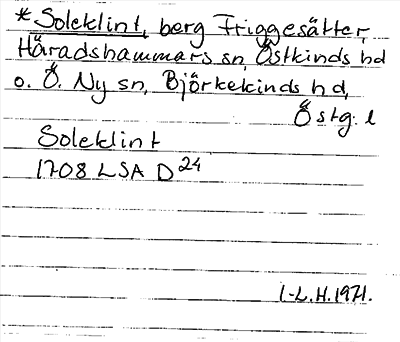 * Soleklint, berg Friggesätter,
Häradshammars sn, Östkinds hd
o. Ö. Ny sn, Björkekinds hd,
Östg. l
Soleklint
1708 LSA D 24
I-L.H. 1971.